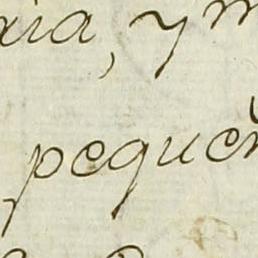 aia, y m
pequeñ